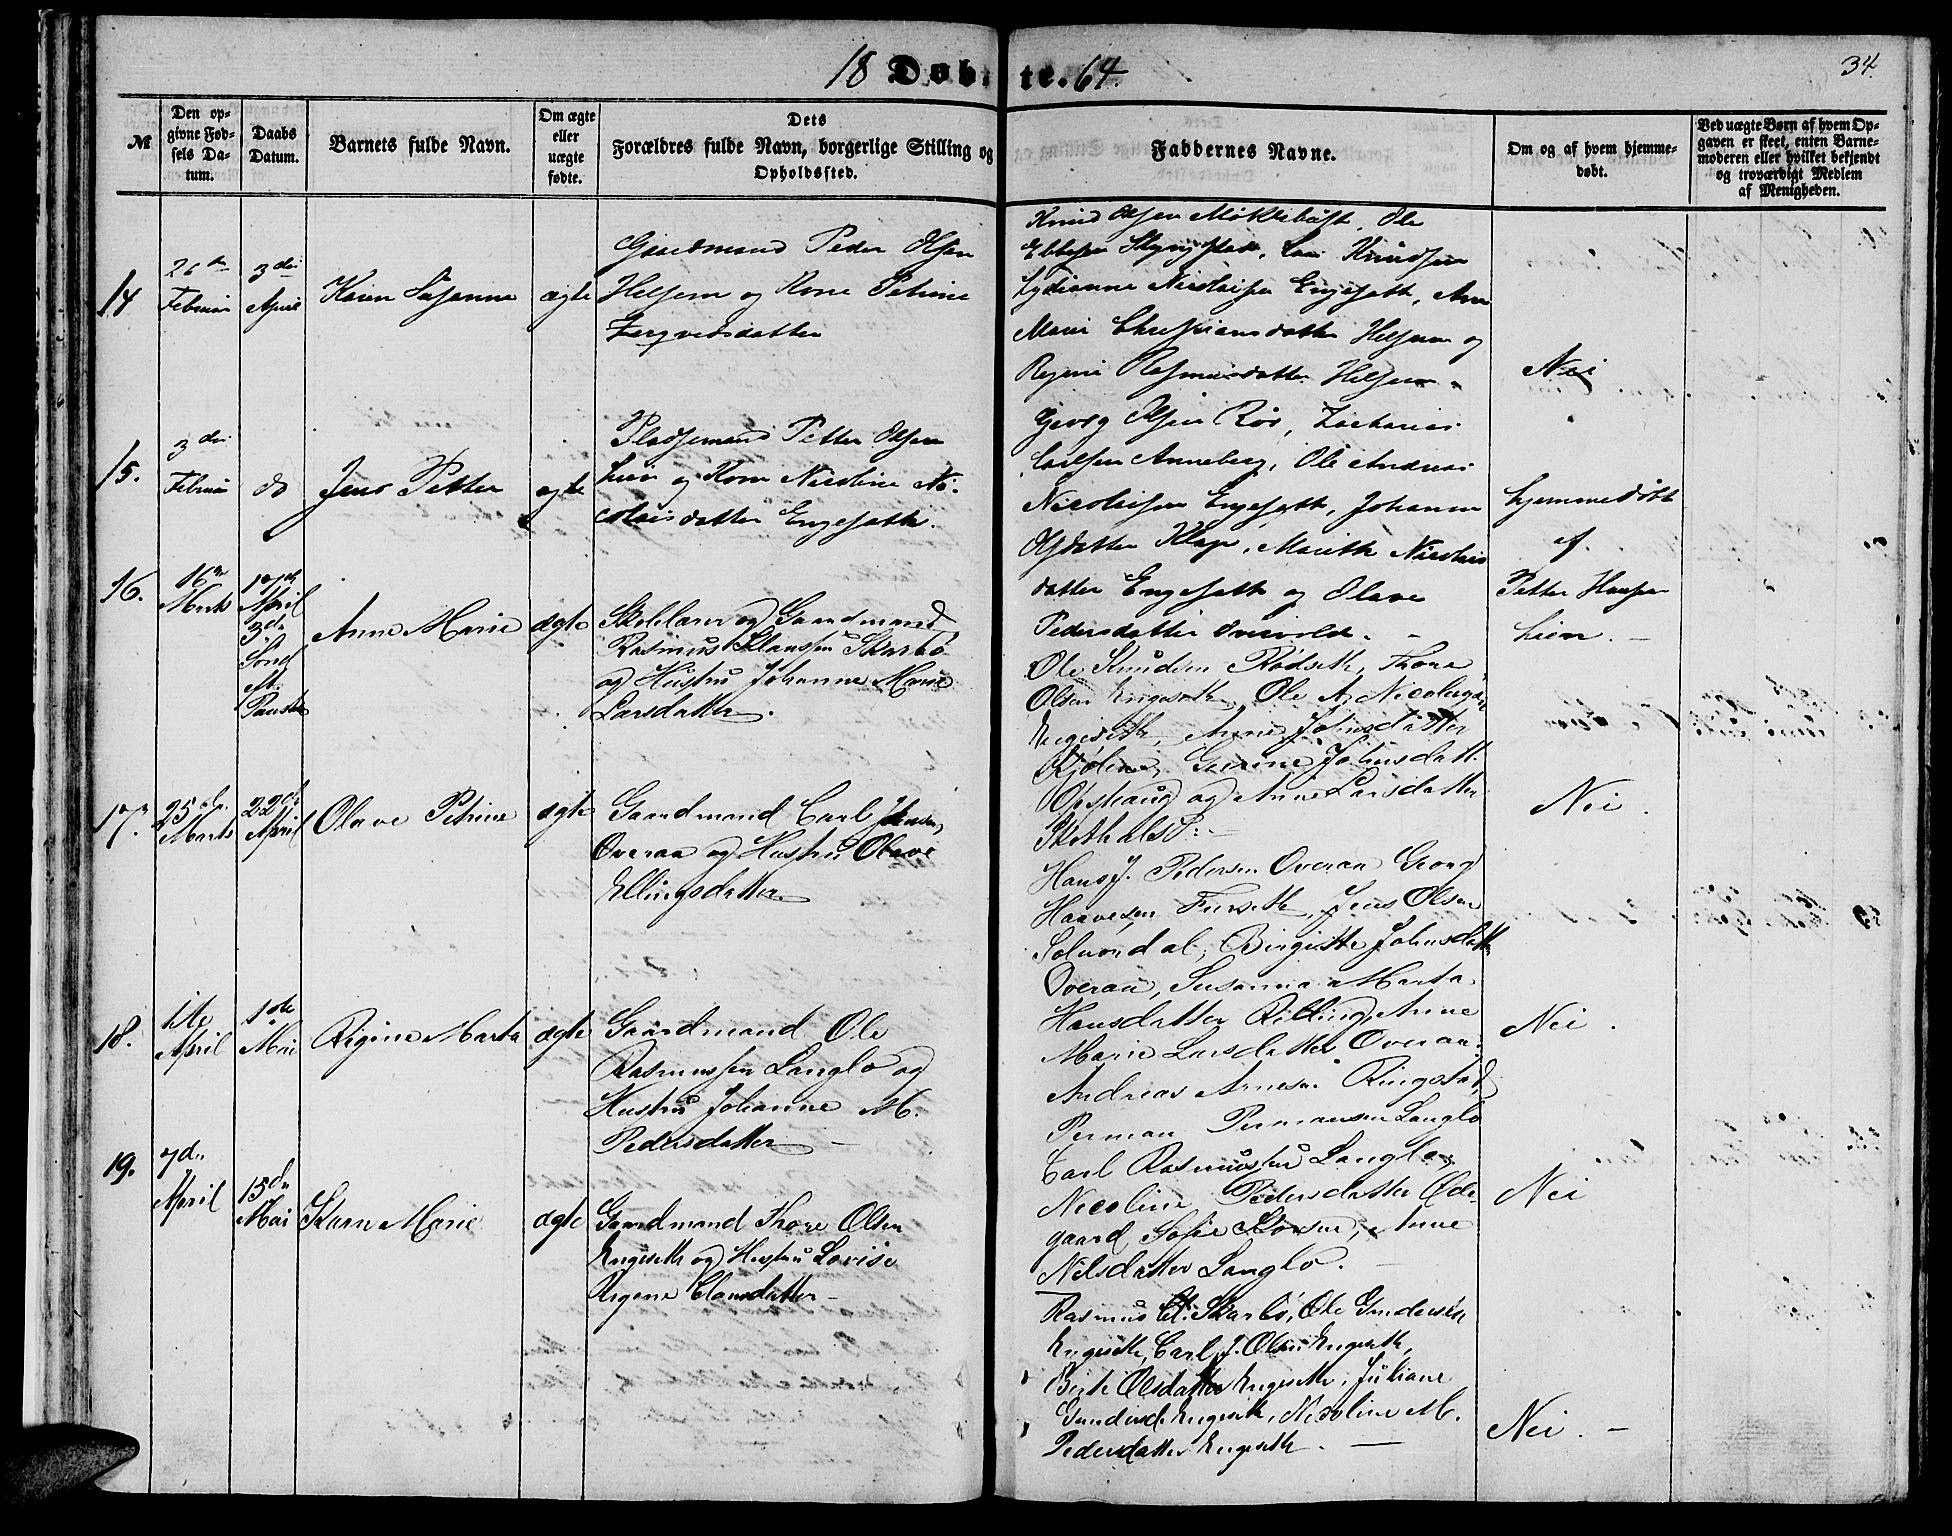 18 Døbte. 64.
34.
№
Den opgivne Fødsels Datum.
Daabs Datum.
Barnets fulde Navn.
Om ægte eller uægte fødte.
Dets Forældres fulde Navn, borgerlige Stilling og Opholdssted.
Faddernes Navne.
Om og af hvem hjemmedøbt.
Ved uægte Børn af hvem Opgaven er skeet, enten Barnemoderen eller hvilket bekjendt og troværdigt Medlem af Menigheden.
14
Februar
3die
April
Karen Susanne
ægte
Gaardmand Peder Olsen
Helsem og Kone Petrine
Knud Olsen Ole
Knudsen
Nicolaisen Engesæth, Ane
Marie Christiansdatter Helsem og
Regine Rasmusdatter Helsem
Nei
15.
3die
Februar
do
Jens Petter
ægte
Pladsemand Petter Olsen
Lien og Kone Nicoline Ni-
colaisdatter Engesæth.
Georg Olsen Zacharias
Carlsen Anneberg, Ole Andreas
Nicolaisen Engesæth, Johanne
Olsdatter Marith Nicolais
datter Engesæth og Olave
Pedersdatter
hjemmedøbt
af
Petter Hansen
Lien. –
16.
16de
Marts
17de
April
3die
Sønd
eft.
Paaske
Anne Marie
ægte
Skolelærer og Gaardmand
Rasmus Klaussen Skarbø
og Hustru Johanne Marie
Larsdatter.
Ole Knudsen Rødseth, Thore
Olsen Engeseth, Ole A. Nicolaisen
Engeseth, Anne Johnsdatter
Kjølen, Gurine Johnsdatt.
Opshaug og Anne Larsdatter
Nei.
17.
25de
Marts
22de
April
Olave Petrine
ægte
Gaardmand Carl Johnsen
Overaa og Hustru Olave
Ellingsdatter.
Hans J. Pedersen Overaa, Georg
Haavesen Furseth, Jens Olsen
Solnordal, Birgitte Johnsdatt
Overaa, Susanna Marta
Hansdatter Anne
Marie Larsdatter Overaa.
Nei.
18.
1ste
April
1ste
Mai
Regine Marta
ægte
Gaardmand Ole
Rasmussen Langlo og
Hustru Johanne M.
Pedersdatter –
Andreas Arnesen Ringstad,
Perman Permansen Langlo
Carl Rasmussen Langlo,
Nicoline Pedersdatter Øde-
gaard Sofie Anne
Nilsdatter Langlo.
Nei
19.
7de
April
15de
Mai
Karn Marie
ægte
Gaardmand Thore Olsen
Engeseth og Hustru Lovise
Regine Clausdatter –
Rasmus Cl. Skarbø, Ole Gundersen
Engeseth, Carl J. Olsen Engeseth,
Berte Olsdatter Engeseth, Juliane
Gundersd. Engeseth, Nicoline M.
Pedersdatter Engeseth. –
Nei. –